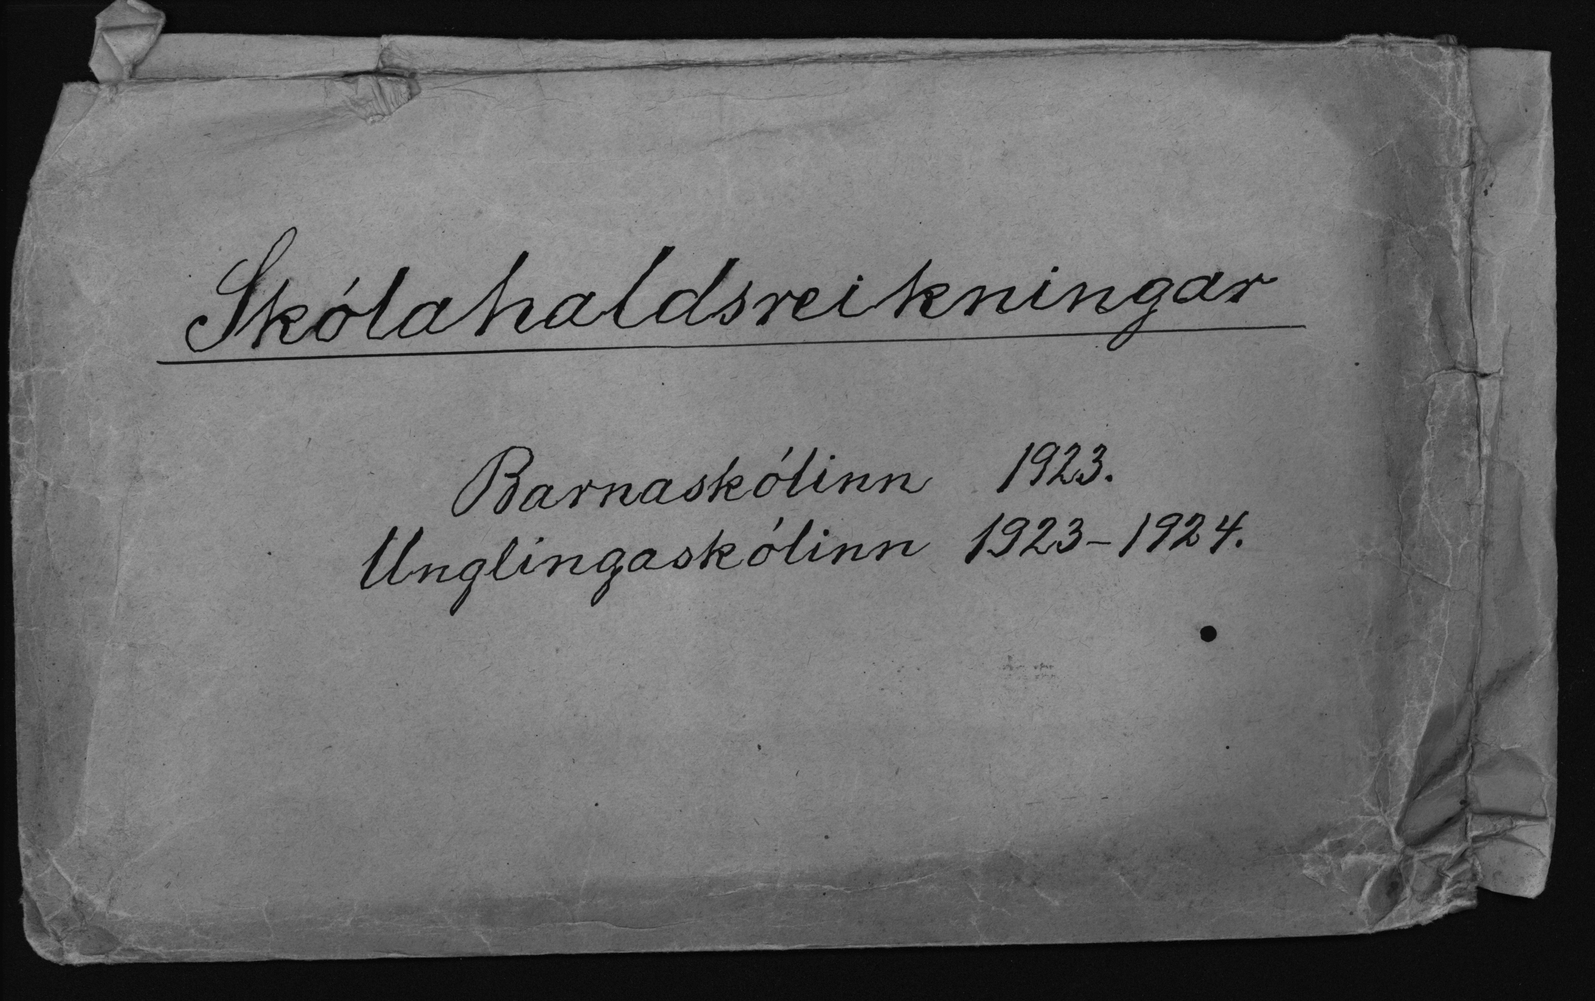 Skólahaldsreikningar
Barnaskólinn 1923.
Unglingaskólinn 1923-1924.